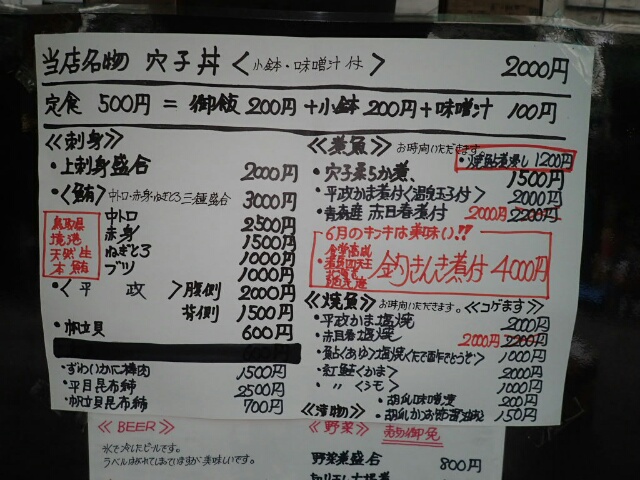 当店名物 穴子丼 〈小鉢・味噌汁付〉 2000円
定食 500円 = 御飯 200円 + 小鉢 200円 + 味噌汁 100円
≪刺身≫
・上刺身盛合 2000円
・〈鮪〉中トロ・赤身・ねぎとろ三種盛合 3000円
鳥取県
境港
天然生
本鮪
中トロ 2500円
赤身 1500円
ねぎとろ 1000円
ブツ 1000円
・〈平政〉腹側 2000円
背側 1500円
・帆立貝 600円
・ずわいかに棒肉 1500円
・平目昆布〆 2500円
・帆立貝昆布〆 700円
≪煮魚≫ お時間いただきます。
・焼鮎煮浸し 1200円
・穴子柔らか煮 1500円
・平政かま煮付〈温泉玉子付〉 2000円
・青森産 赤目春煮付 2000円 2200円
6月のキンキは美味い!!
釣きんき煮付 4000円
≪焼魚≫ お時間いただきます。≪コゲます≫
・平政かま塩焼 2000円
・赤目春塩焼 2000円 2200円
1000円
・紅鮭〈かま〉 2000円
・〃 〈うモ〉 1000円
≪漬物≫
・胡瓜味噌漬 200円
150円
≪BEER≫
氷で冷したビールです。
ラベルはがれてしまっていますが美味しいです。
≪野菜≫ 売切御免
野菜煮盛合 800円